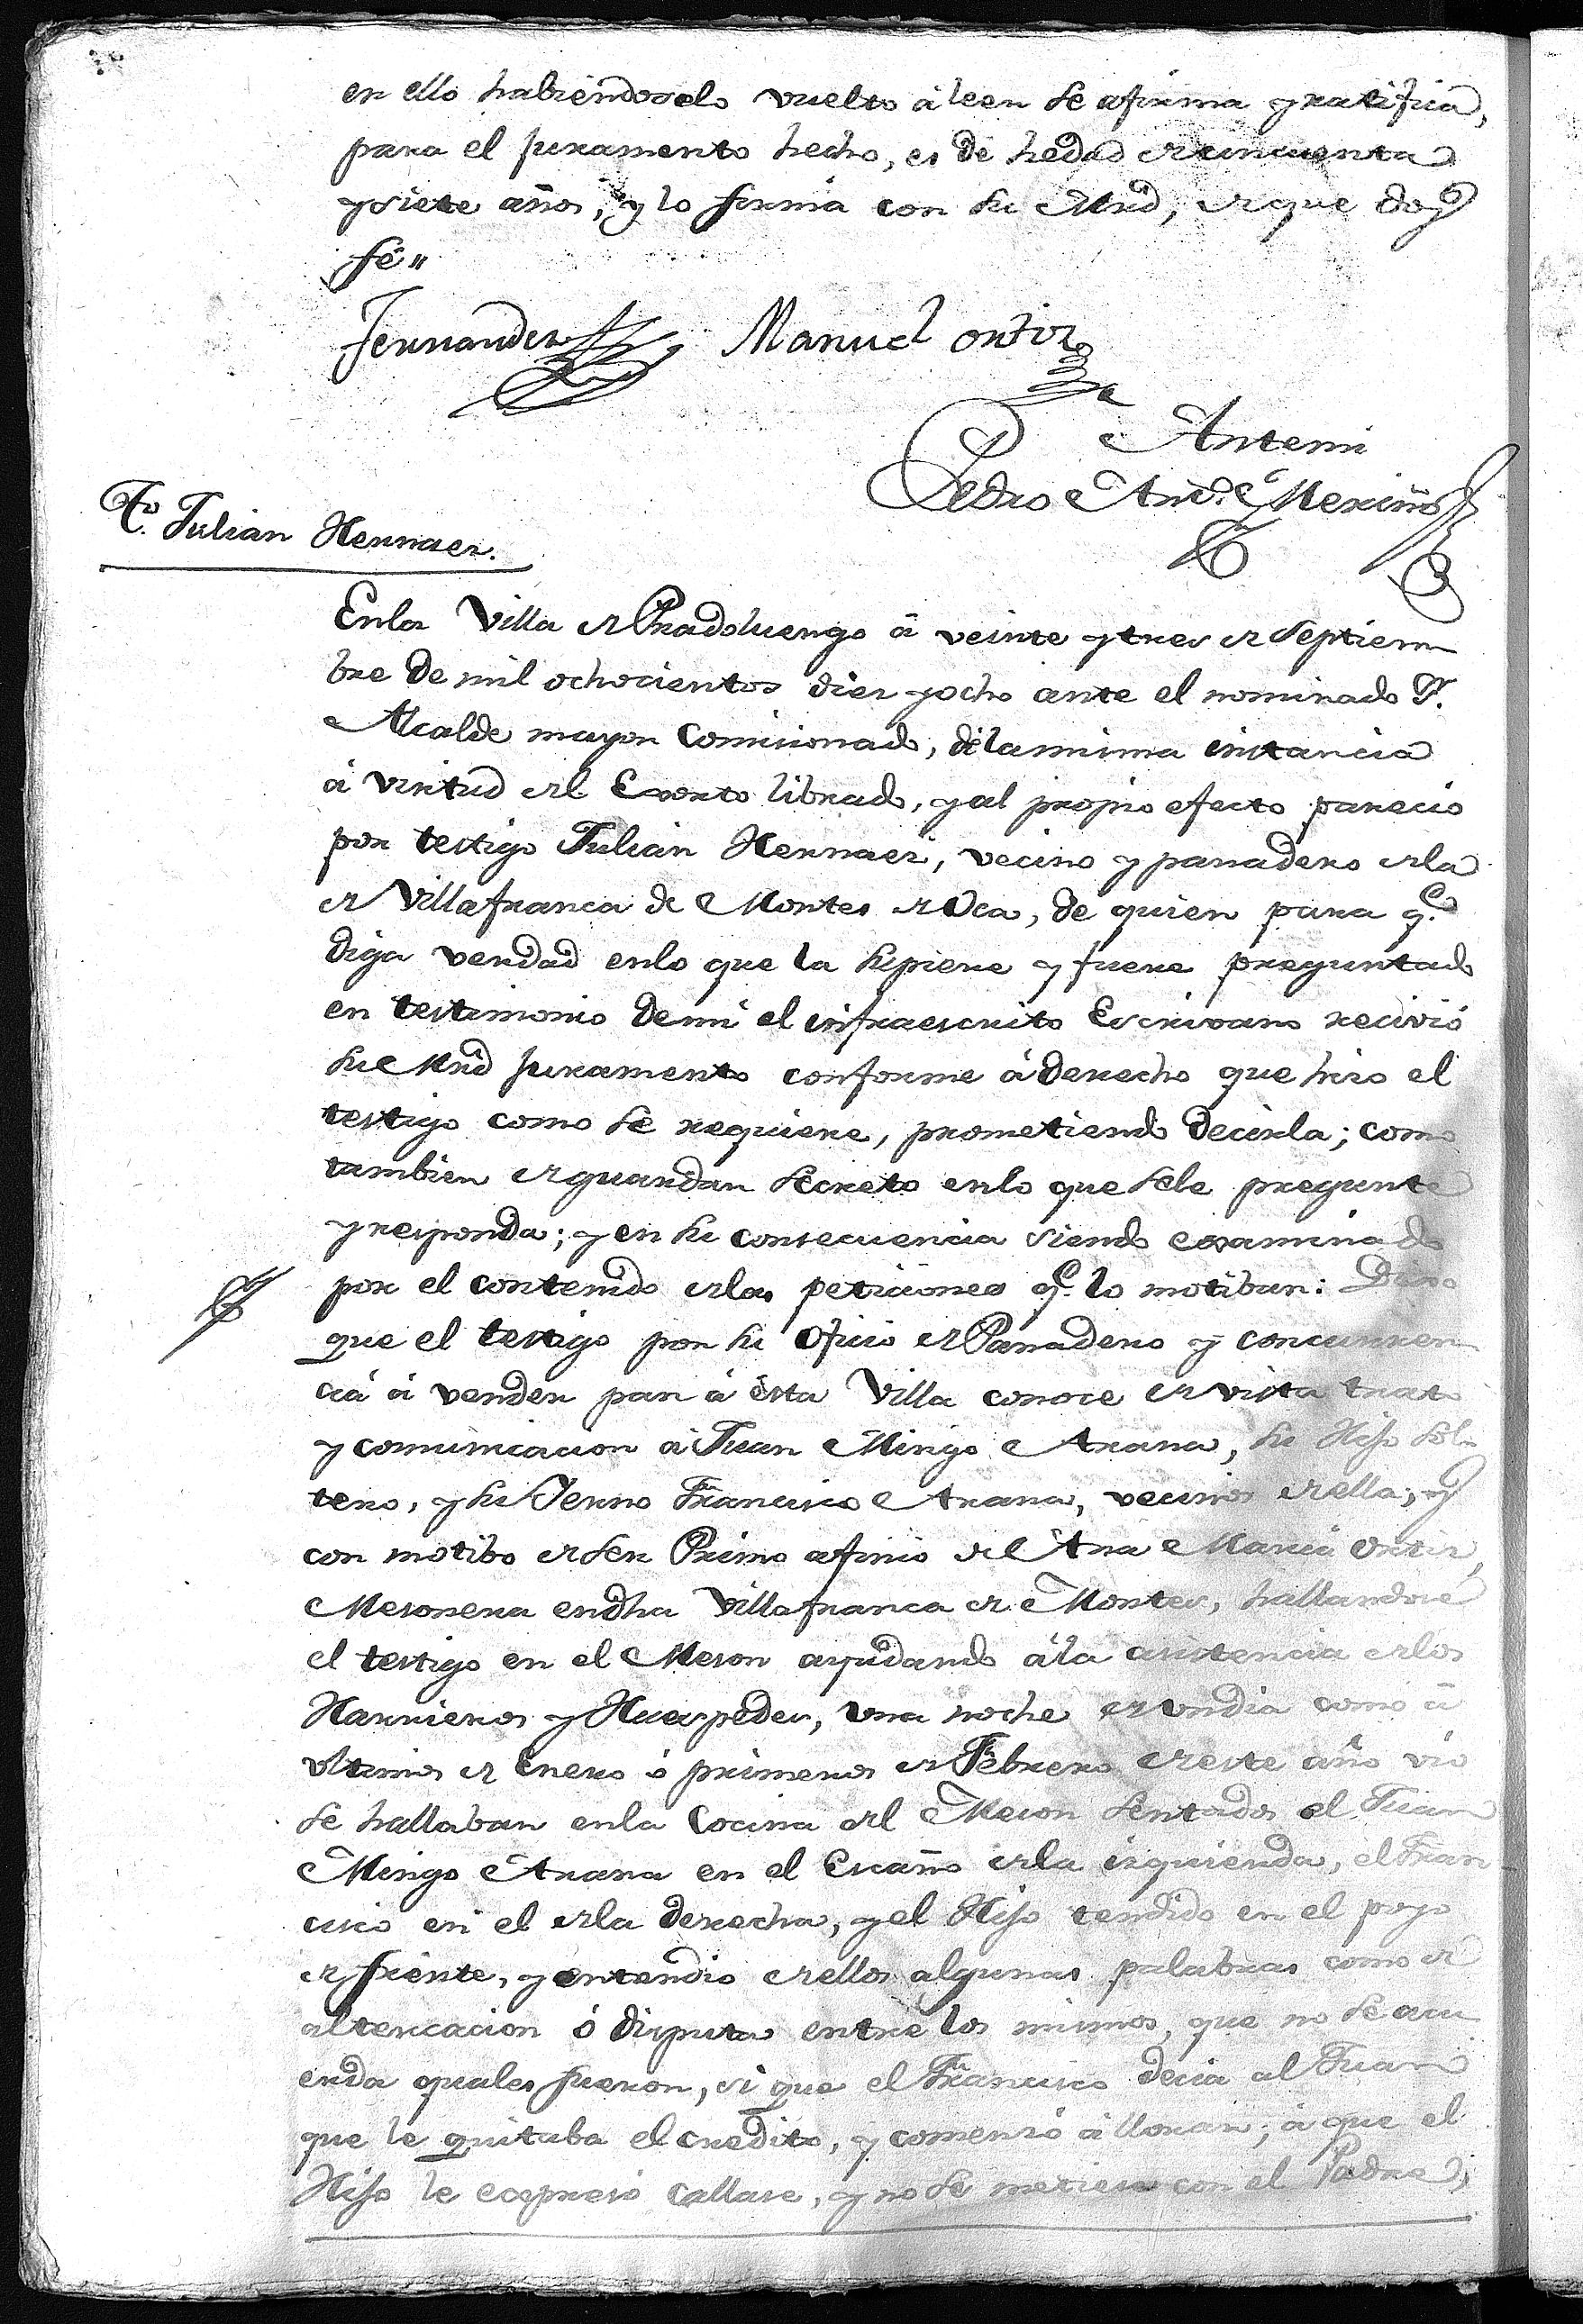 en ello habiendoselo vuelto á leer se afirma y ratifica,
para el juramento hecho, es de hedad de cincuenta
y siete años, y lo firma con su Mrd, de que doy
fé"
Fernandez Manuel Ortiz
Antemi
Pedro Ant.º Meriño
T.º Julian Hernaez.
Enla Villa de Pradoluengo á veinte y tres de Septiem
bre de mil ochocientos diez y ocho ante el nominado S.r
Alcalde mayor Comisionado, de la misma instancia
á virtud del Exorto librado, y al propio efecto parecio
por testigo Julian Hernaez, vecino y panadero de la
de Villafranca de Montes de Oca, de quien para q.e
diga verdad enlo que la supiere y fuere preguntado
en testimonio demi el infraescrito Escrivano recivió
su Mrd juramento conforme á derecho que hizo el
testigo como se requiere, prometiendo decirla; como
tambien de guardar secreto enlo que sele pregunte
y responda; y en su consecuencia siendo examinado
por el contenido de las peticiones q.e lo motiban: Dixo
que el testigo por su Oficio de Panadero y concurren
cia á vender pan á ésta Villa conoce de vista trato
y comunicacion á Juan Mingo Arana, su Hijo Sol
tero, y su Yerno Francisco Arana, vecinos de ella, y
con motibo de ser Primo afinis de Ana Maria Ortiz,
Mesonera endha Villafranca de Montes, hallandose
el testigo en el Meson ayudando á la asistencia de los
Harrieros y Huespedes, una noche de undia como á
ultimos de Enero ó primeros de Febrero de este año vió
se hallaban enla Cocina del Meson sentados el Juan
Mingo Arana en el Escaño de la izquierda, el Fran
cisco en el de la derecha, y el Hijo tendido en el poyo
de frente, y entendio de ellos algunas palabras como de
altercacion ó disputa entre los mismos, que no se acu
erda quales fueron, si que el Francisco decia al Juan
que le quitaba el credito, y comenzó á llorar; á que el
Hijo le expresó callase, y no se metiese con el Padre,